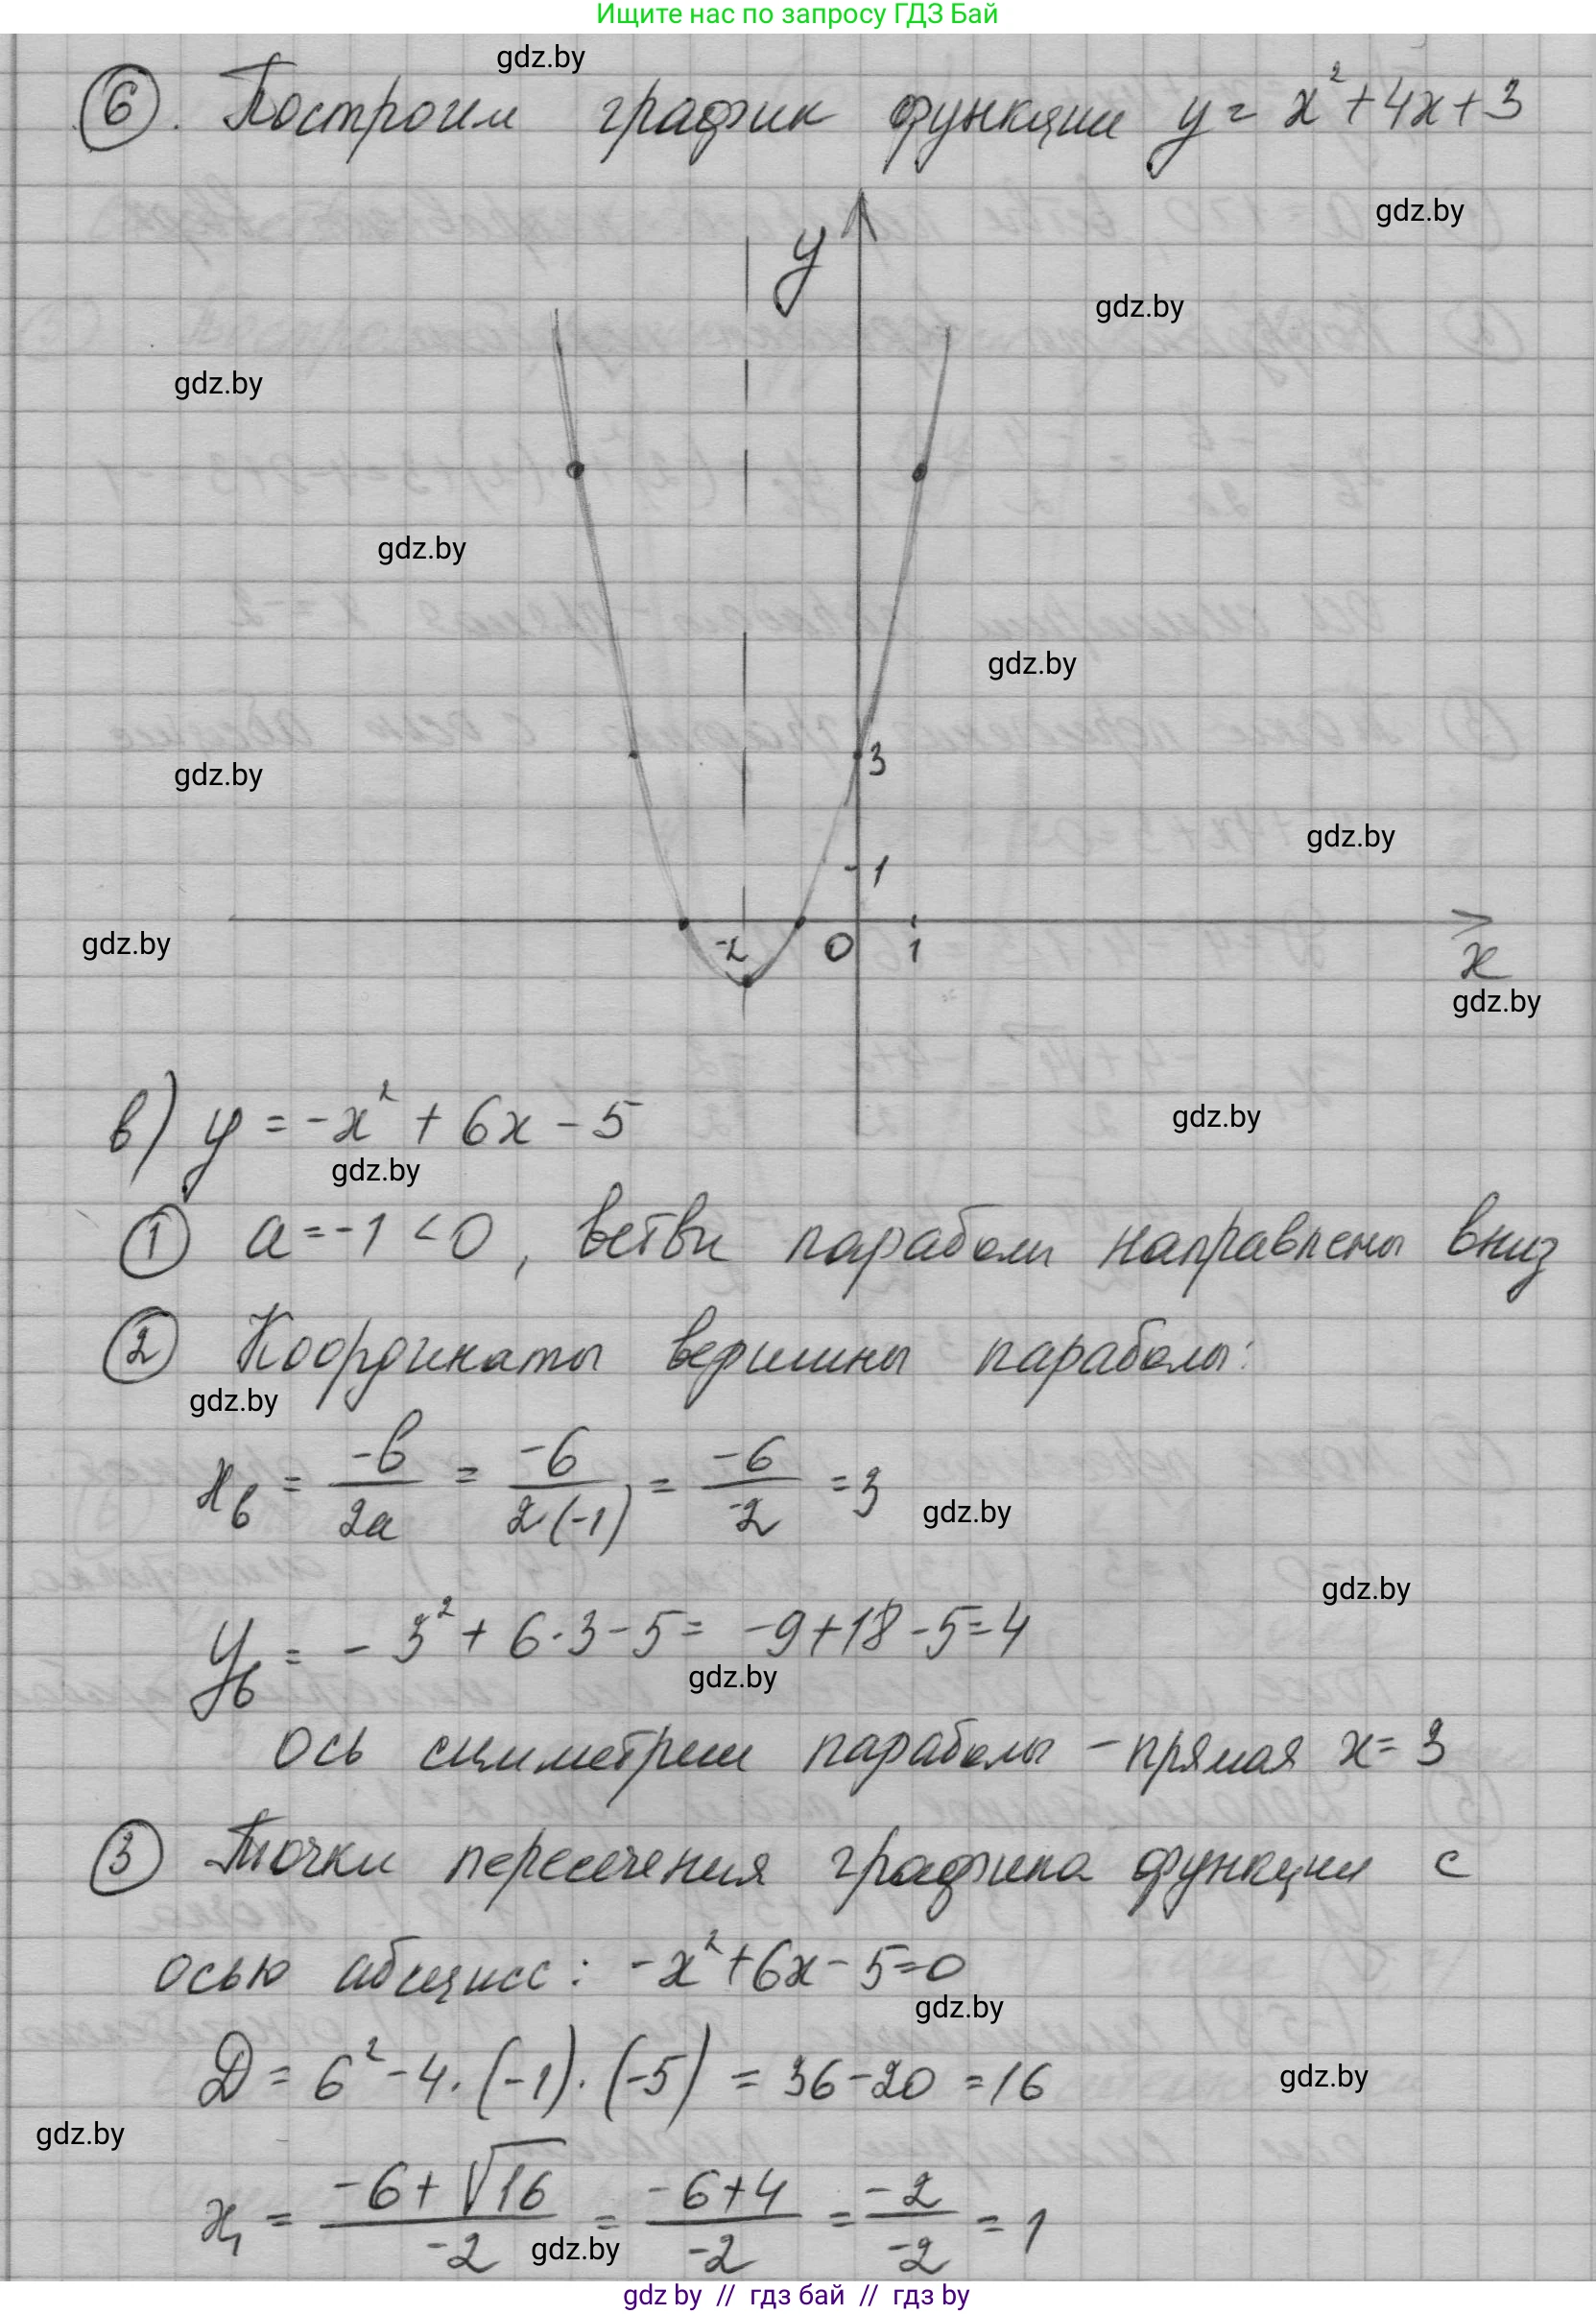 Ищите нас по запросу ГДЗ Бай
gdz.by
6. Построим график функции y = x² + 4x + 3
gdz.by
y
gdz.by
gdz.by
gdz.by
gdz.by
3
gdz.by
gdz.by
1
gdz.by
-2 0 1
x
gdz.by
в) y = -x² + 6x - 5
gdz.by
gdz.by
1 a = -1 < 0, ветви параболы направлены вниз
2 Координаты вершины параболы:
gdz.by
xв = -b/2a = -6/2(-1) = -6/-2 = 3
gdz.by
gdz.by
yв = -3² + 6·3 - 5 = -9 + 18 - 5 = 4
gdz.by
ось симметрии параболы - прямая x = 3
3 Точки пересечения графика функции с
осью абсцисс: -x² + 6x - 5 = 0
gdz.by
D = 6² - 4·(-1)·(-5) = 36 - 20 = 16
gdz.by
gdz.by
x₁ = -6+√16/-2 = -6+4/-2 = -2/-2 = 1
gdz.by
gdz by // гдз бай // гдз by